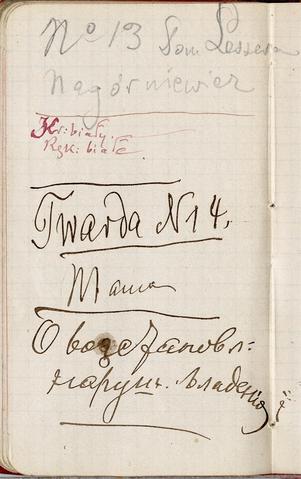 No 13 Dom Lessera
Nagórniewicz
Kr: biały.
Ręk: białe
Twarda N 14.
Mama
О возстановл:
наруш. владенія